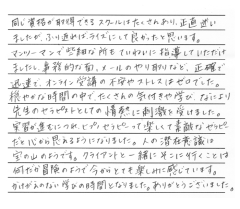 同じ資格が取得できるスクールはたくさんあり、正直迷い
ましたが、ふり返ればライズにして良かったと思います。
マンツーマンで些細な所をていねいに指導していただけ
ましたし、事務的な面、メールのやり取りなど、正確で
迅速で、オンライン受講の不安やストレスはゼロでした。
穏やかな時間の中でたくさんの気付きや学び、なにより
先生のセラピストとしての情熱に刺激を受けました。
学習が進むにつれ、ヒプノセラピーって楽しくて素敵なセラピー
だと心から思えるようになりました。人の潜在意識は
宝の山のようです。クライアントと一緒にそこに行くことは
何だか冒険のようで今からとても楽しみに感じています。
かけがえのない学びの時間となりました。ありがとうございました。